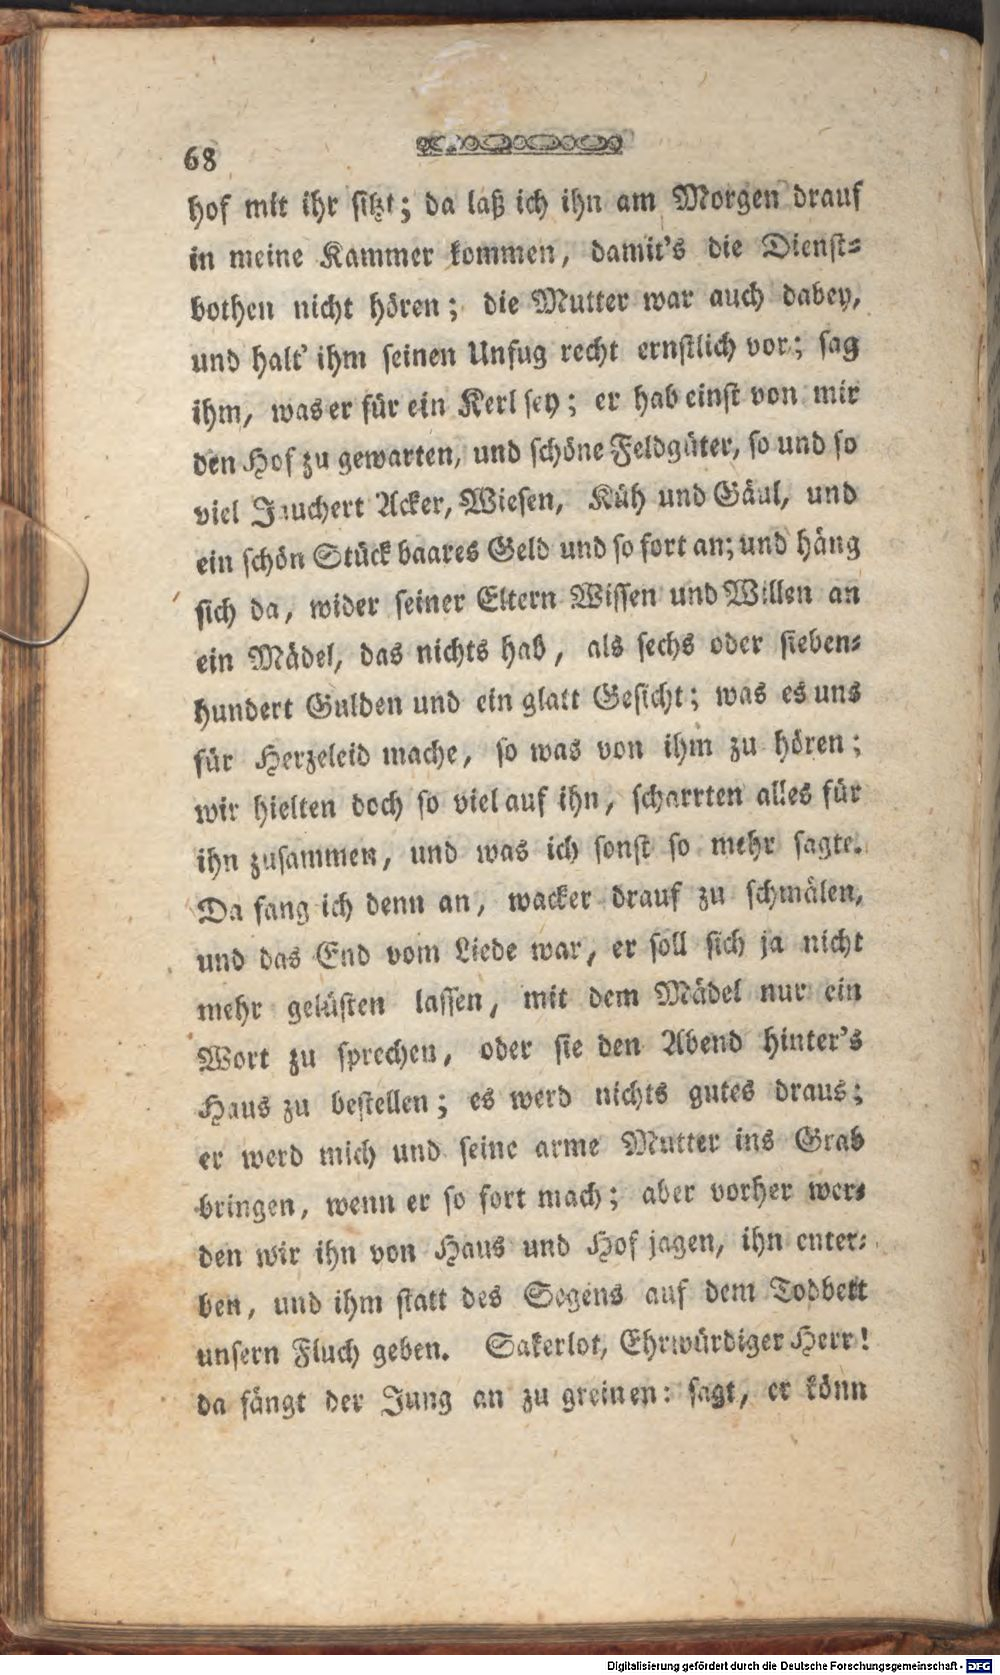 68
hof mit ihr sitzt; da laß ich ihn am Morgen drauf
in meine Kammer kommen, damit's die Dienst-
bothen nicht hören; die Mutter war auch dabey,
und halt' ihm seinen Unfug recht ernstlich vor; sag
ihm, was er für ein Kerl sey; er hab einst von mir
den Hof zu gewarten, und schöne Feldgüter, so und so
viel Jauchert Acker, Wiesen, Küh und Gäul, und
ein schön Stück baares Geld und so fort an; und häng
sich da, wider seiner Eltern Wissen und Willen an
ein Mädel, das nichts hab, als sechs oder sieben-
hundert Gulden und ein glatt Gesicht; was es uns
für Herzeleid mache, so was von ihm zu hören;
wir hielten doch so viel auf ihn, scharrten alles für
ihn zusammen, und was ich sonst so mehr sagte.
Da fang ich denn an, wacker drauf zu schmälen,
und das End vom Liede war, er soll sich ja nicht
mehr gelüsten lassen, mit dem Mädel nur ein
Wort zu sprechen, oder sie den Abend hinter's
Haus zu bestellen; es werd nichts gutes draus;
er werd mich und seine arme Mutter ins Grab
bringen, wenn er so fort mach; aber vorher wer-
den wir ihn von Haus und Hof jagen, ihn enter-
ben, und ihm statt des Segens auf dem Todbett
unsern Fluch geben. Sakerlot, Ehrwürdiger Herr!
da fängt der Jung an zu greinen: sagt, er könn
Digitalisierung gefördert durch die Deutsche Forschungsgemeinschaft - DFG